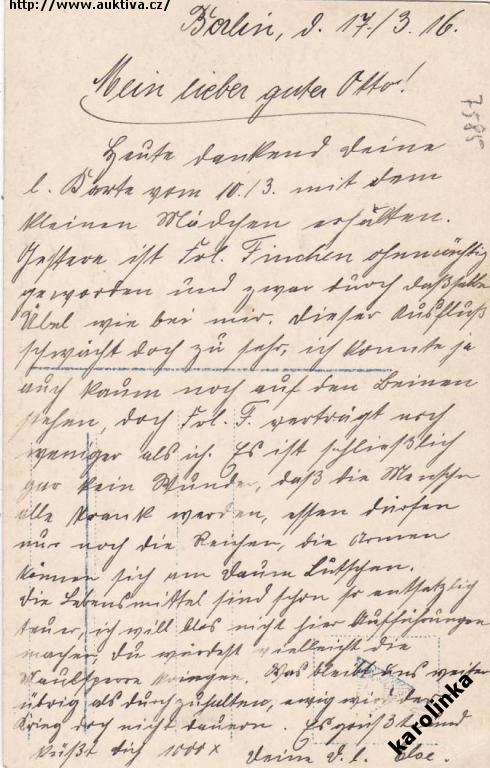 http://www.auktiva.cz/
Berlin, d. 17./3. 16.
Mein lieber guter Otto!
7585
Heute dankend deine
l. Karte vom 10./3. mit dem
kleinen Mädchen erhalten.
Gestern ist Frl. Finchen ohnmächtig
geworden und zwar durch dasselbe
Übel wie bei mir. Dieser Ausfluß
schwächt doch zu sehr, ich konnte ja
auch kaum noch auf den Beinen
stehen, doch Frl. F. verträgt noch
weniger als ich. Es ist schließlich
gar kein Wunder, daß die Menschen
alle krank werden, essen dürfen
nur noch die Reichen, die Armen
können sich am Daum lutschen.
Die Lebensmittel sind schon so entsetzlich
teuer, ich will blos nicht hier Aufführungen
machen du würdest vielleicht die
Maulsperre kriegen. Was bleibt uns weiter
übrig als durchzuhalten, ewig wird der
Krieg doch nicht dauern. Es grüßt und
küßt dich 1000 x
Deine d. l.
karolinka